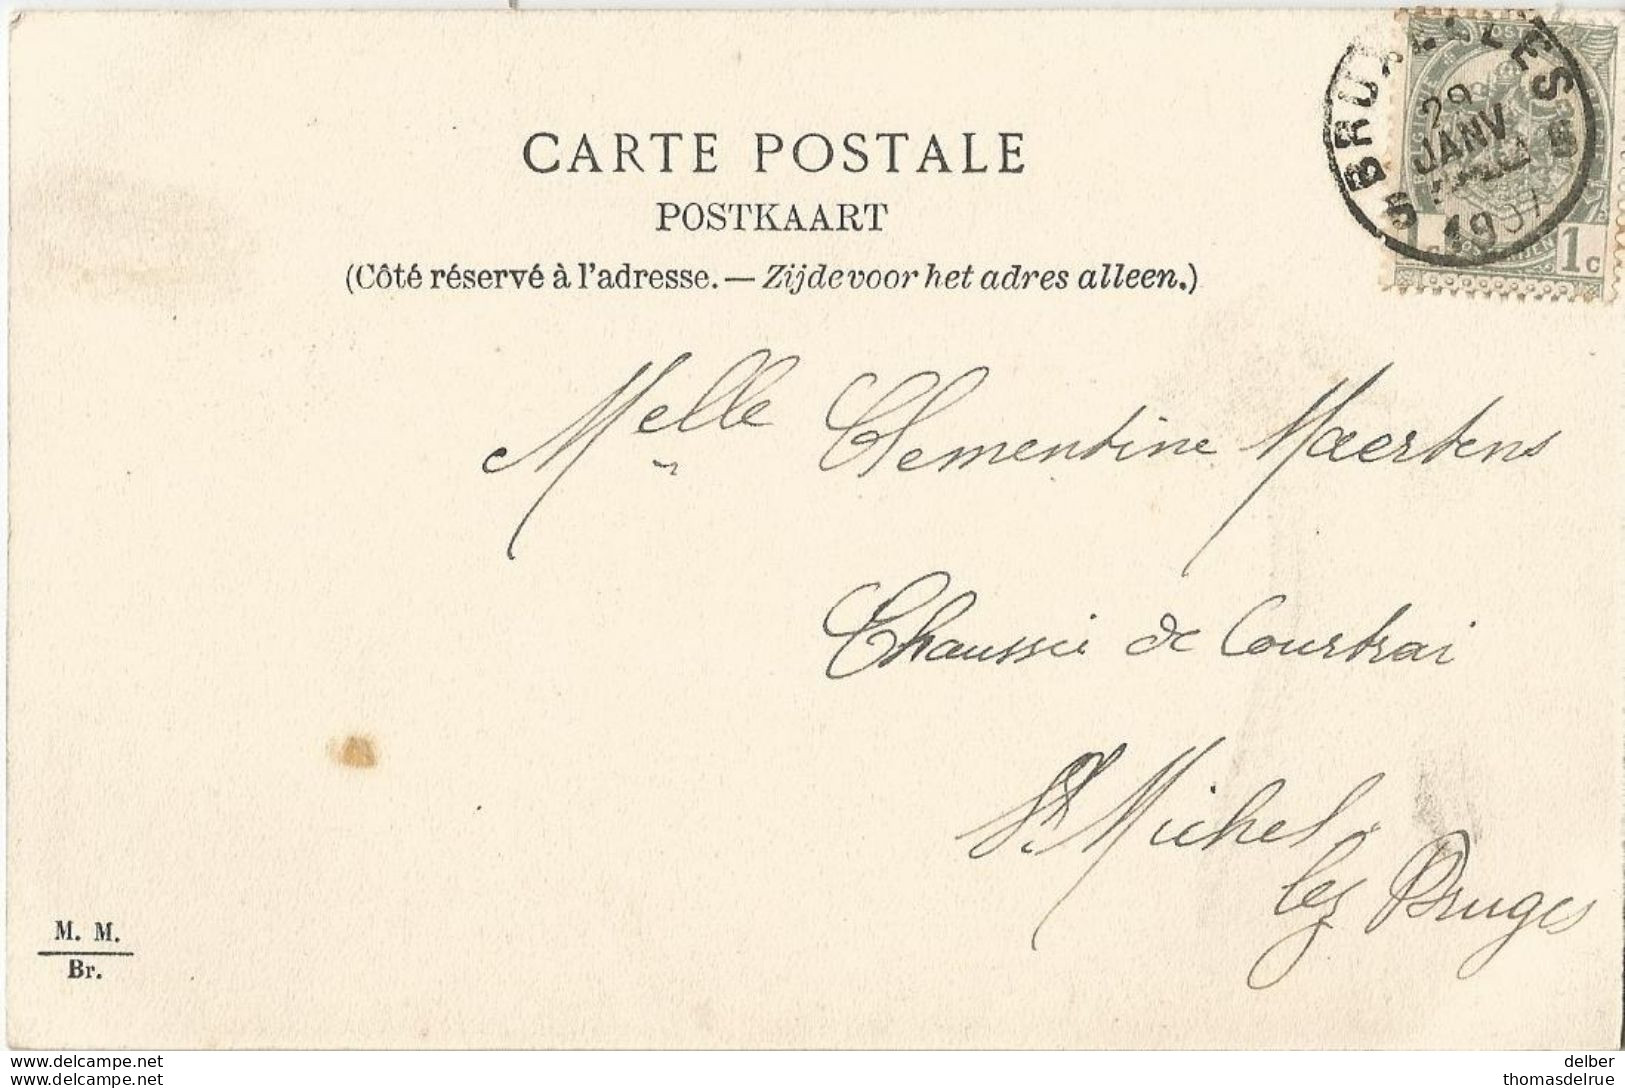 5 BRUXELLES 5
29
JANV.
1907
1c 1c
CARTE POSTALE
POSTKAART
(Côté réservé à l'adresse. — Zijde voor het adres alleen.)
Melle Clementine Maertens
Chaussée de Courtrai
St. Michel
lez Bruges
M. M.
Br.
www.delcampe.net
www.delcampe.net
delber
thomasdelrue